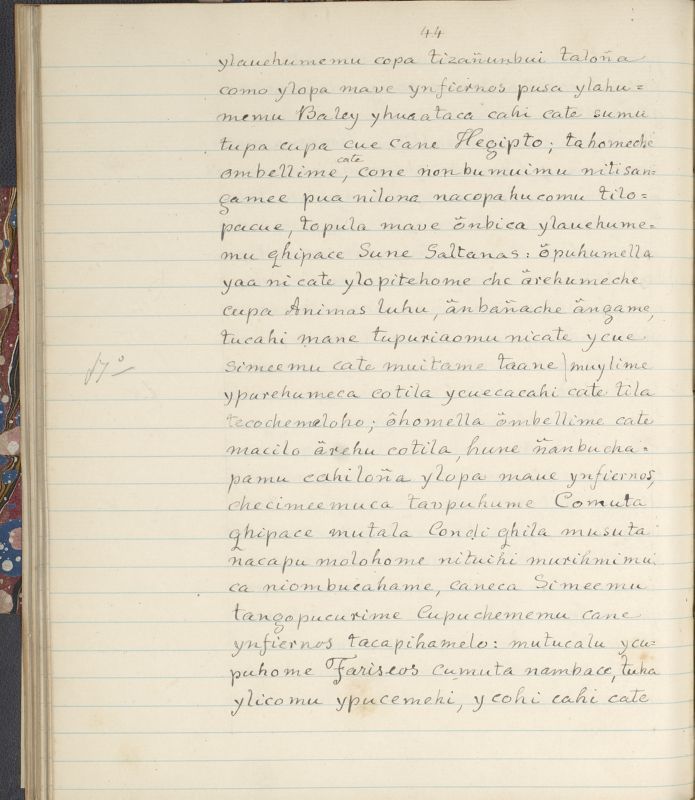 44
ylauehumemu copa tizañunbui taloña
como ylopa mave ynfiernos pusa ylahu=
memu Baley yhuaataca cahi cate sumu
tupa cupa cue cane Hegipto; tahomeche
cate
ombellime, cone nonbumuimu nitisan=
gamee pua nilona nacopahucomu tilo=
pacue, topula mave önbica ylauehume=
mu qhipace Sune Saltanas: öpuhumella
yaa nicate ylopitehome che ärehumeche
cupa Animas luhu, änbañache ängame,
tucahi mane tupuriaomu nicate ycue
simeemu cate muitame taane) muylime
17º
ypurehumeca cotila ycuecacahi cate tila
tecochemeloho; ôhomella ömbellime cate
macilo ärehu cotila, hune ñanbucha=
pamu cahiloña ylopa maue ynfiernos,
checimeemuca tavpuhume Comuta
qhipace mutala Condi qhila musuta
ñacapu molohome nituihi murihmimu
ca niombucahame, caneca Simeemu
tangopucurime Cupuchememu cane
ynfiernos tacapihamelo: mutucalu ycu=
puhome Fariseos cumuta nambace, tuha
ylicomu ypucemehi, y cohi cahi cate